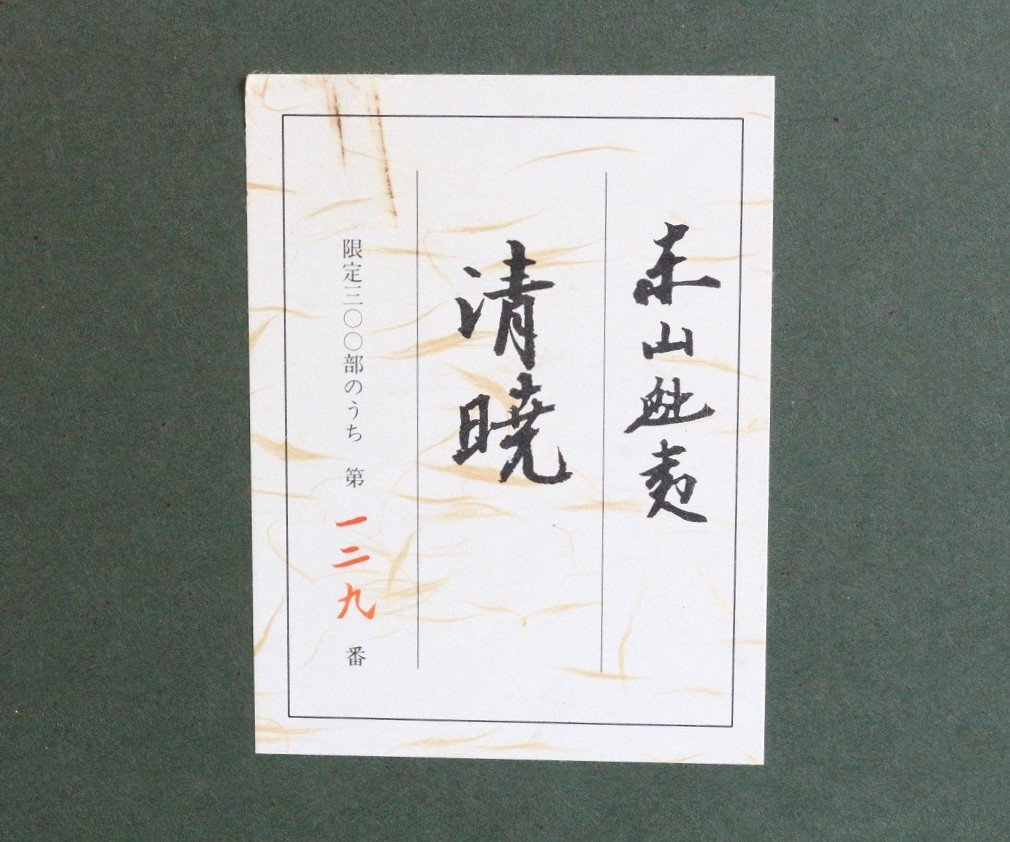 東山魁夷
清暁
限定三〇〇部のうち 第 一二九 番